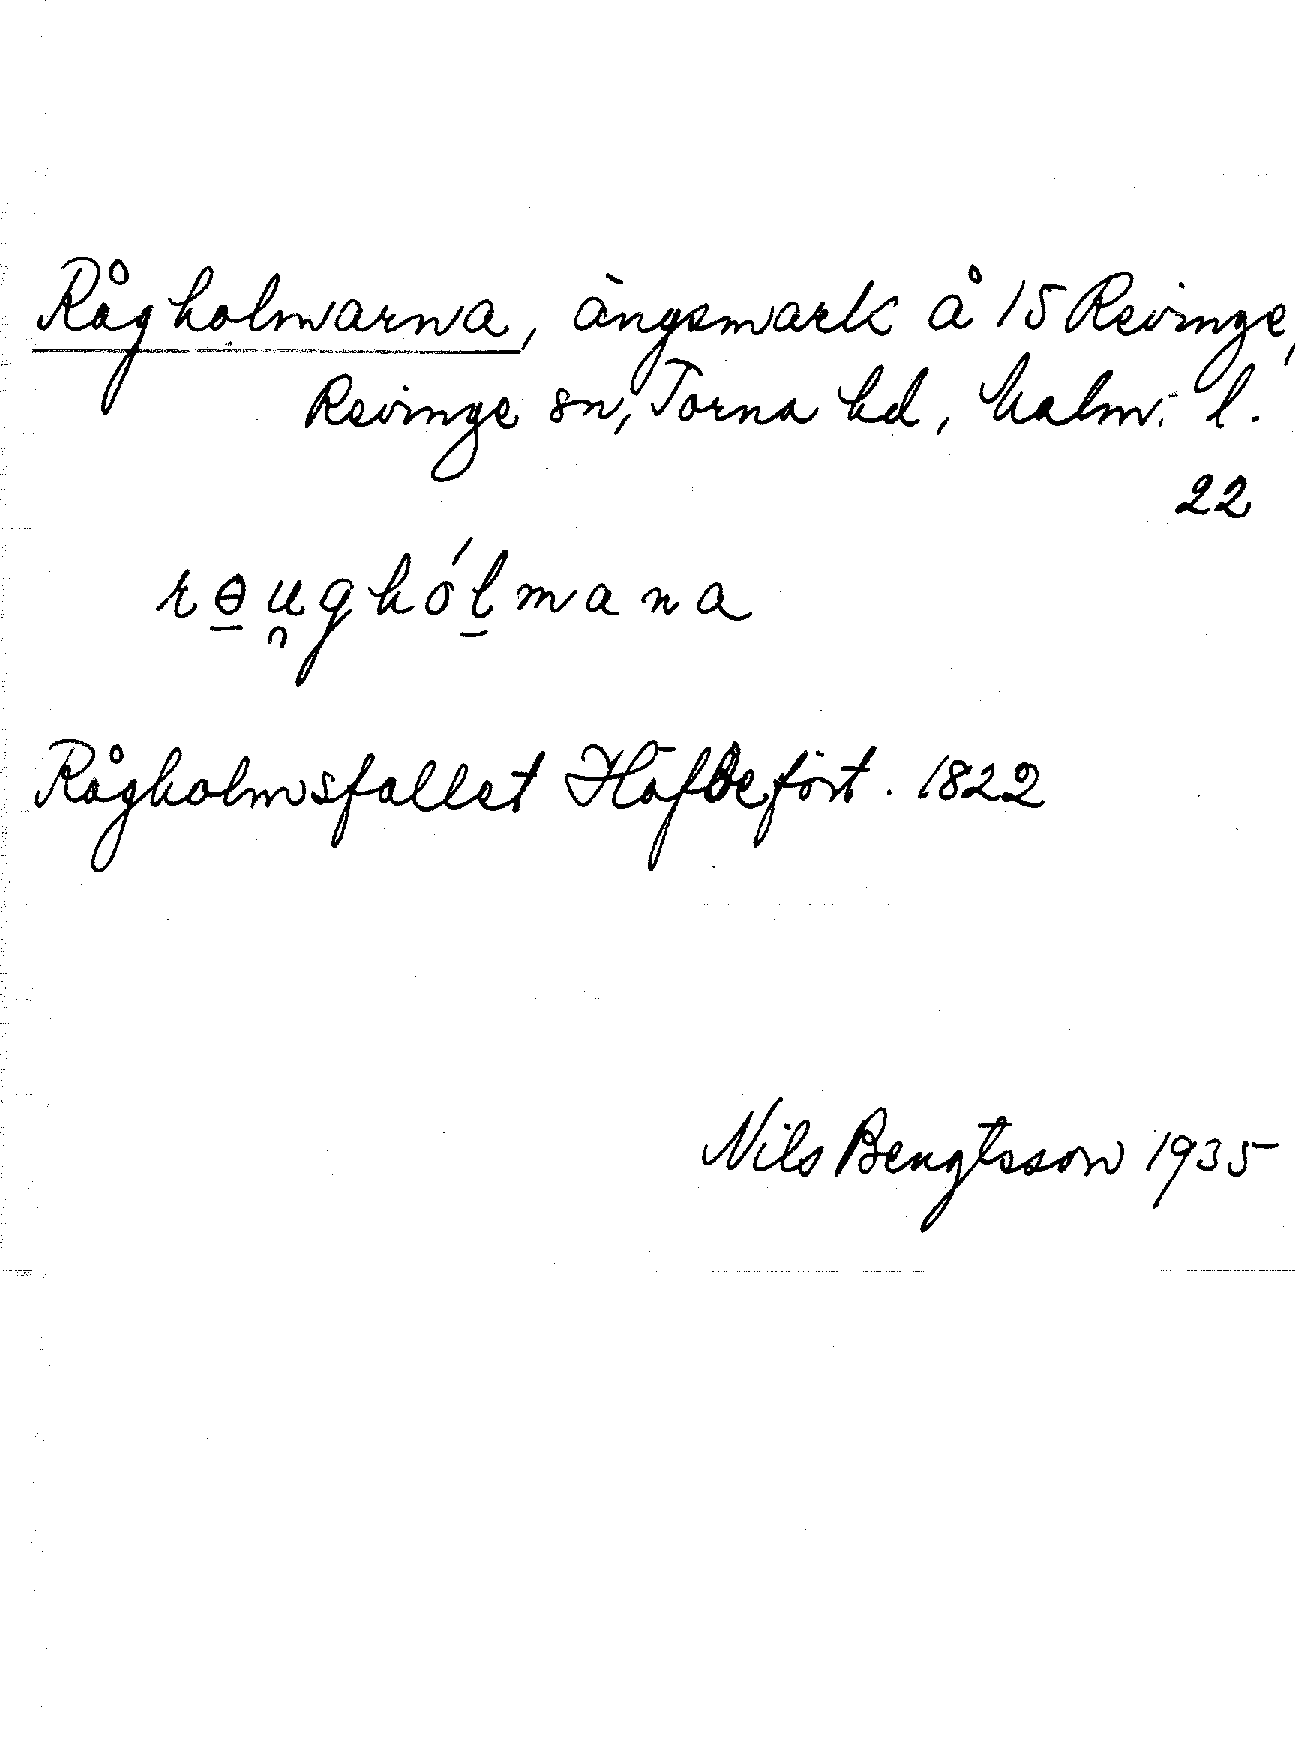 Rågholmarna, ängsmark å 15 Revinge,
Revinge sn, Torna hd, Malm. l.
22
rɵu̯ghólmana
Rågholmsfallet Häfdeför­t. 1822
Nils Bengtsson 1935